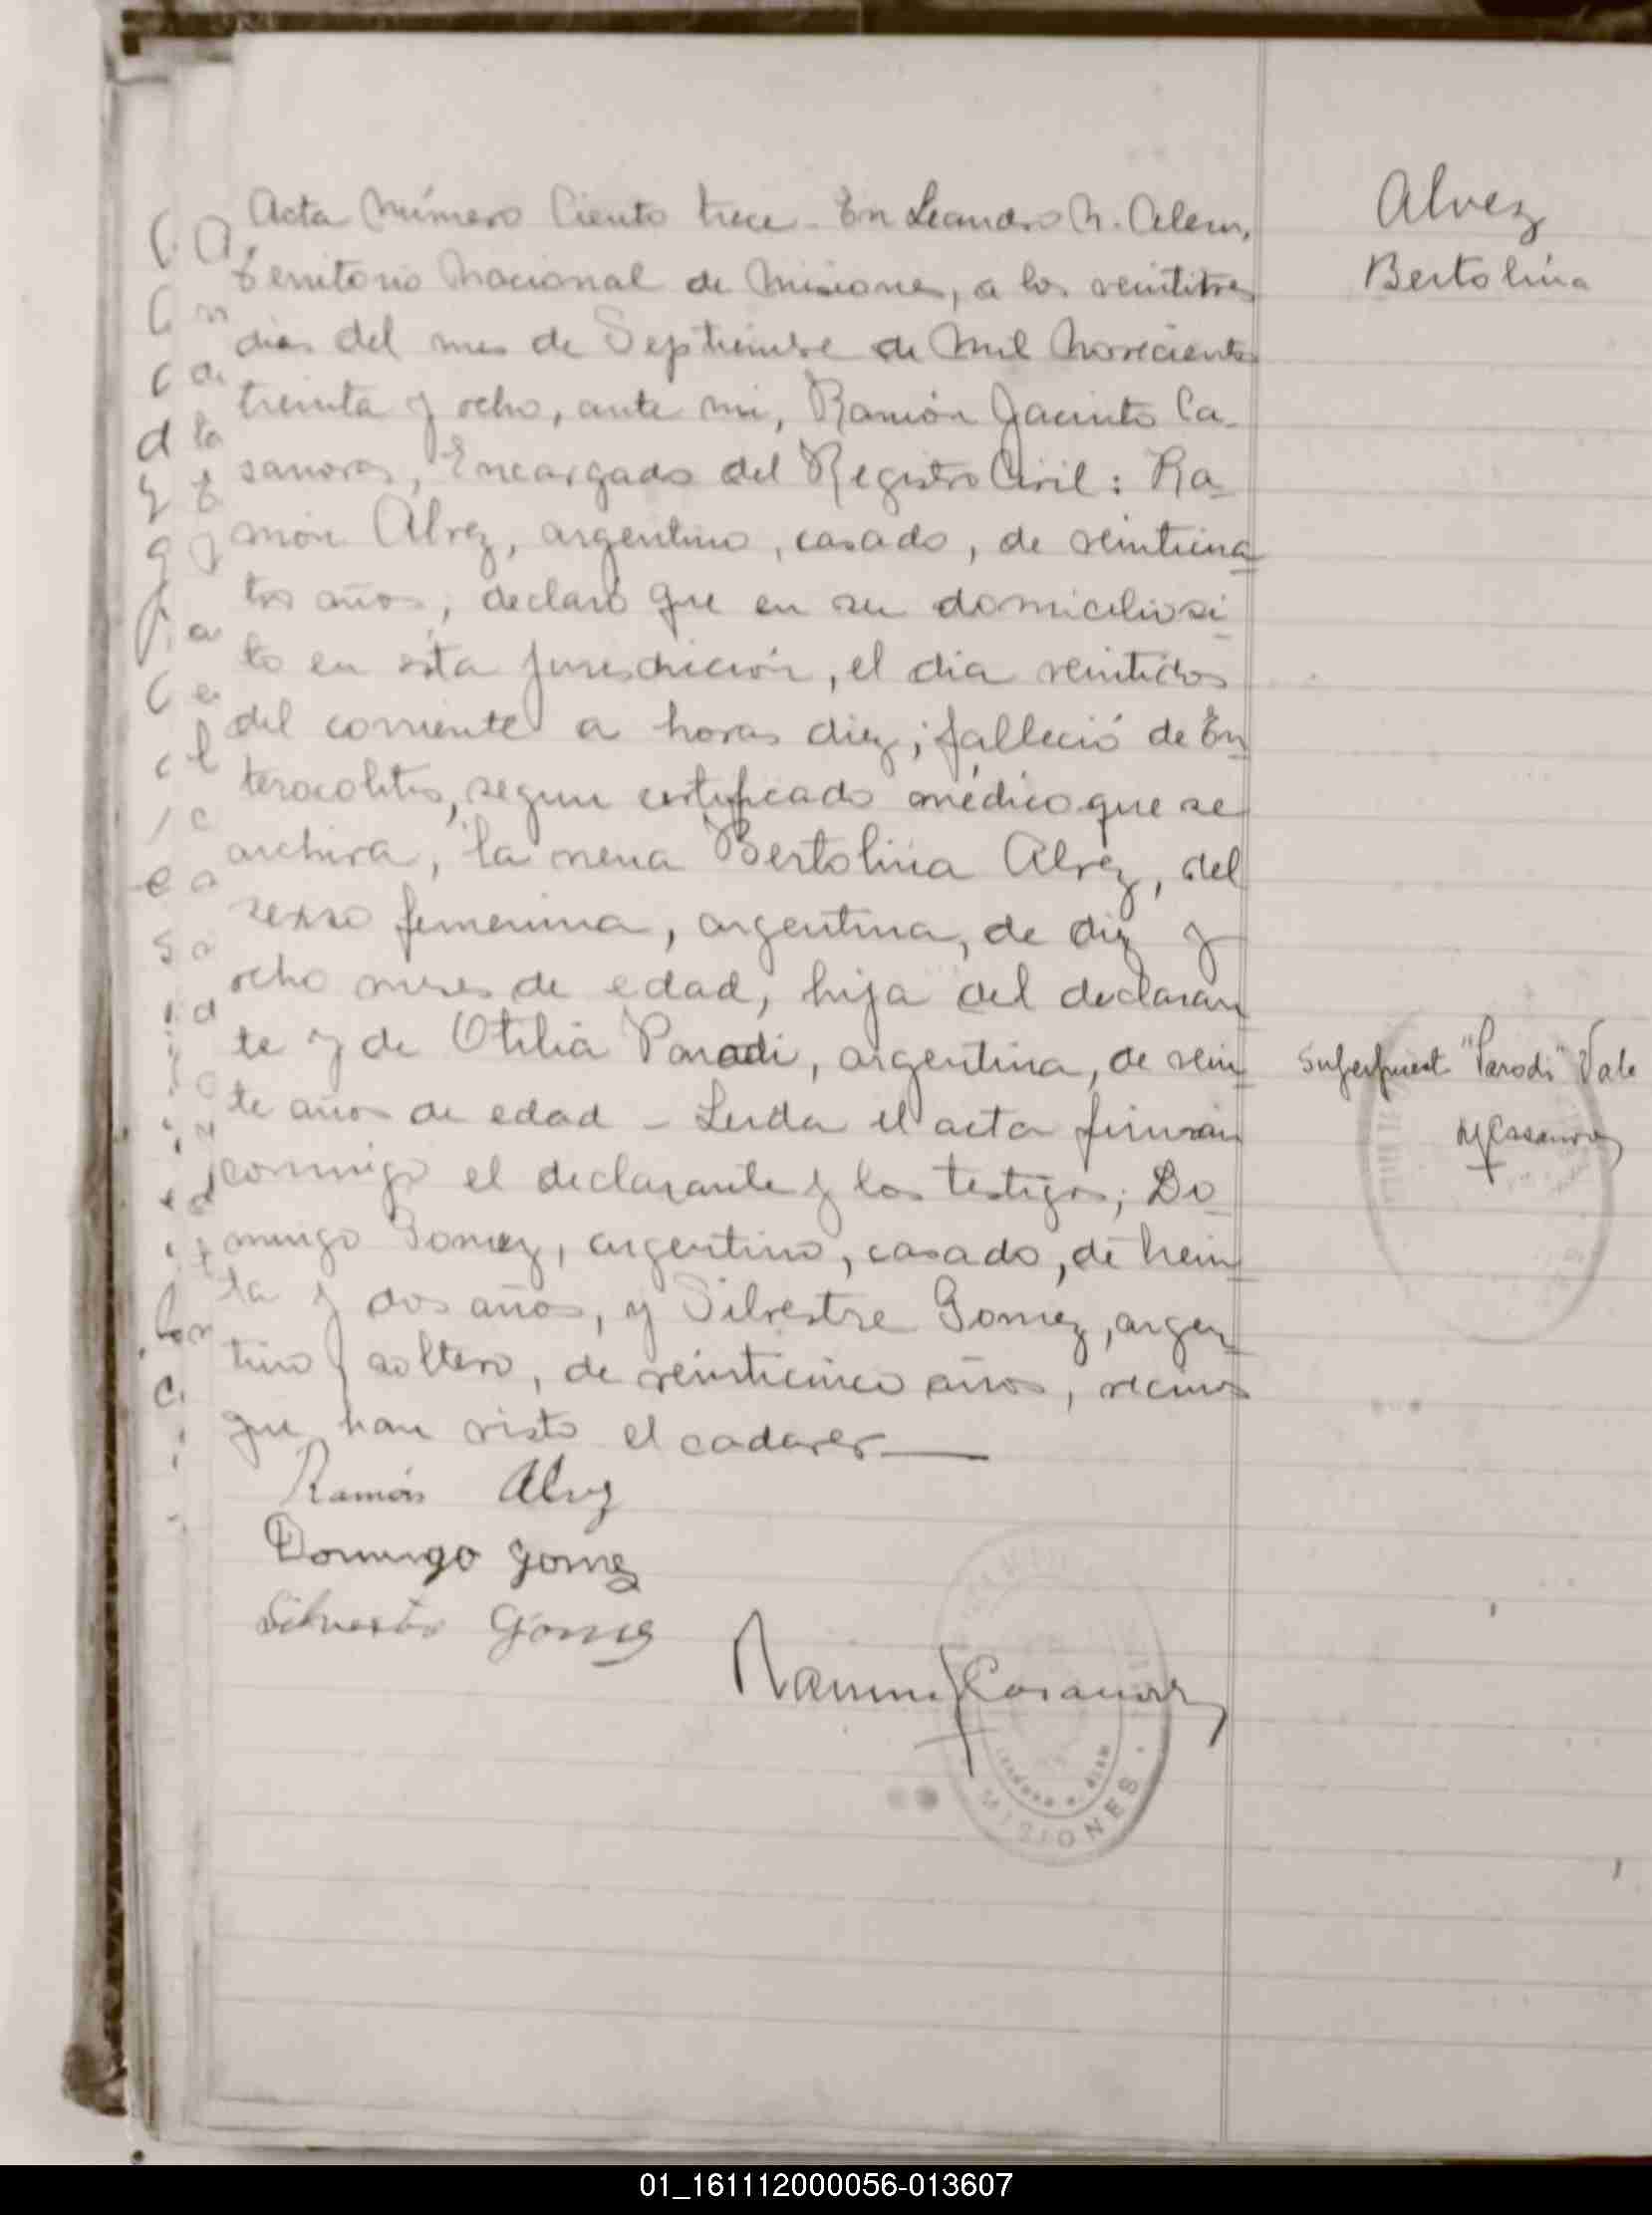 Acta Número Ciento trece - En Leandro N. Alem,
Territorio Nacional de Misiones, a los veintitres
dias del mes de Septiembre de Mil Novecientos
treinta y ocho, ante mi, Ramón Jacinto Ca-
sanova, Encargado del Registro Civil: Ra-
món Alvez, argentino, casado, de
tos años, declaró que en su domicilio si-
to en esta jurisdicción, el dia veintidos
del corriente a horas diez, falleció de En-
terocolitis, segun certificado médico que se
archiva, la nena Bertolina Alvez, del
sexso femenina, argentina, de diez y
ocho meses de edad, hija del declaran-
te y de Otilia Parodi, argentina, de vein-
te años de edad - Leida el acta firman
conmigo el declarante y los testigos, Do-
mingo Gomez, argentino, casado, de trein-
ta y dos años, y Silvestre Gomez, argen-
tino, soltero, de veinticinco años, vecinos
que han visto el cadaver
Ramón Alvez
Domingo Gomez
Silvestre Gomez
Ramon J Casanova
MISIONES
Alvez
Bertolina
"Parodi" Vale
RJCasanova
01_161112000056-013607